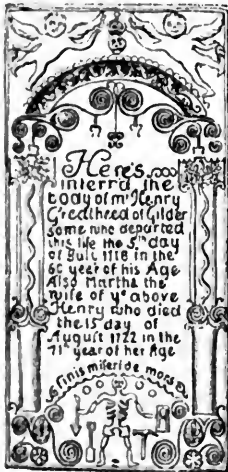 Here's
interr'd the
body of mr Henry
Gredthred of Gilder
some who departed
this life the 5th day
of July 1718 in the
60 year of his Age
Also Martha the
wife of ye above
Henry who died
the 15 day of
August 1722 in the
71 year of her Age
finis miseriæ mors